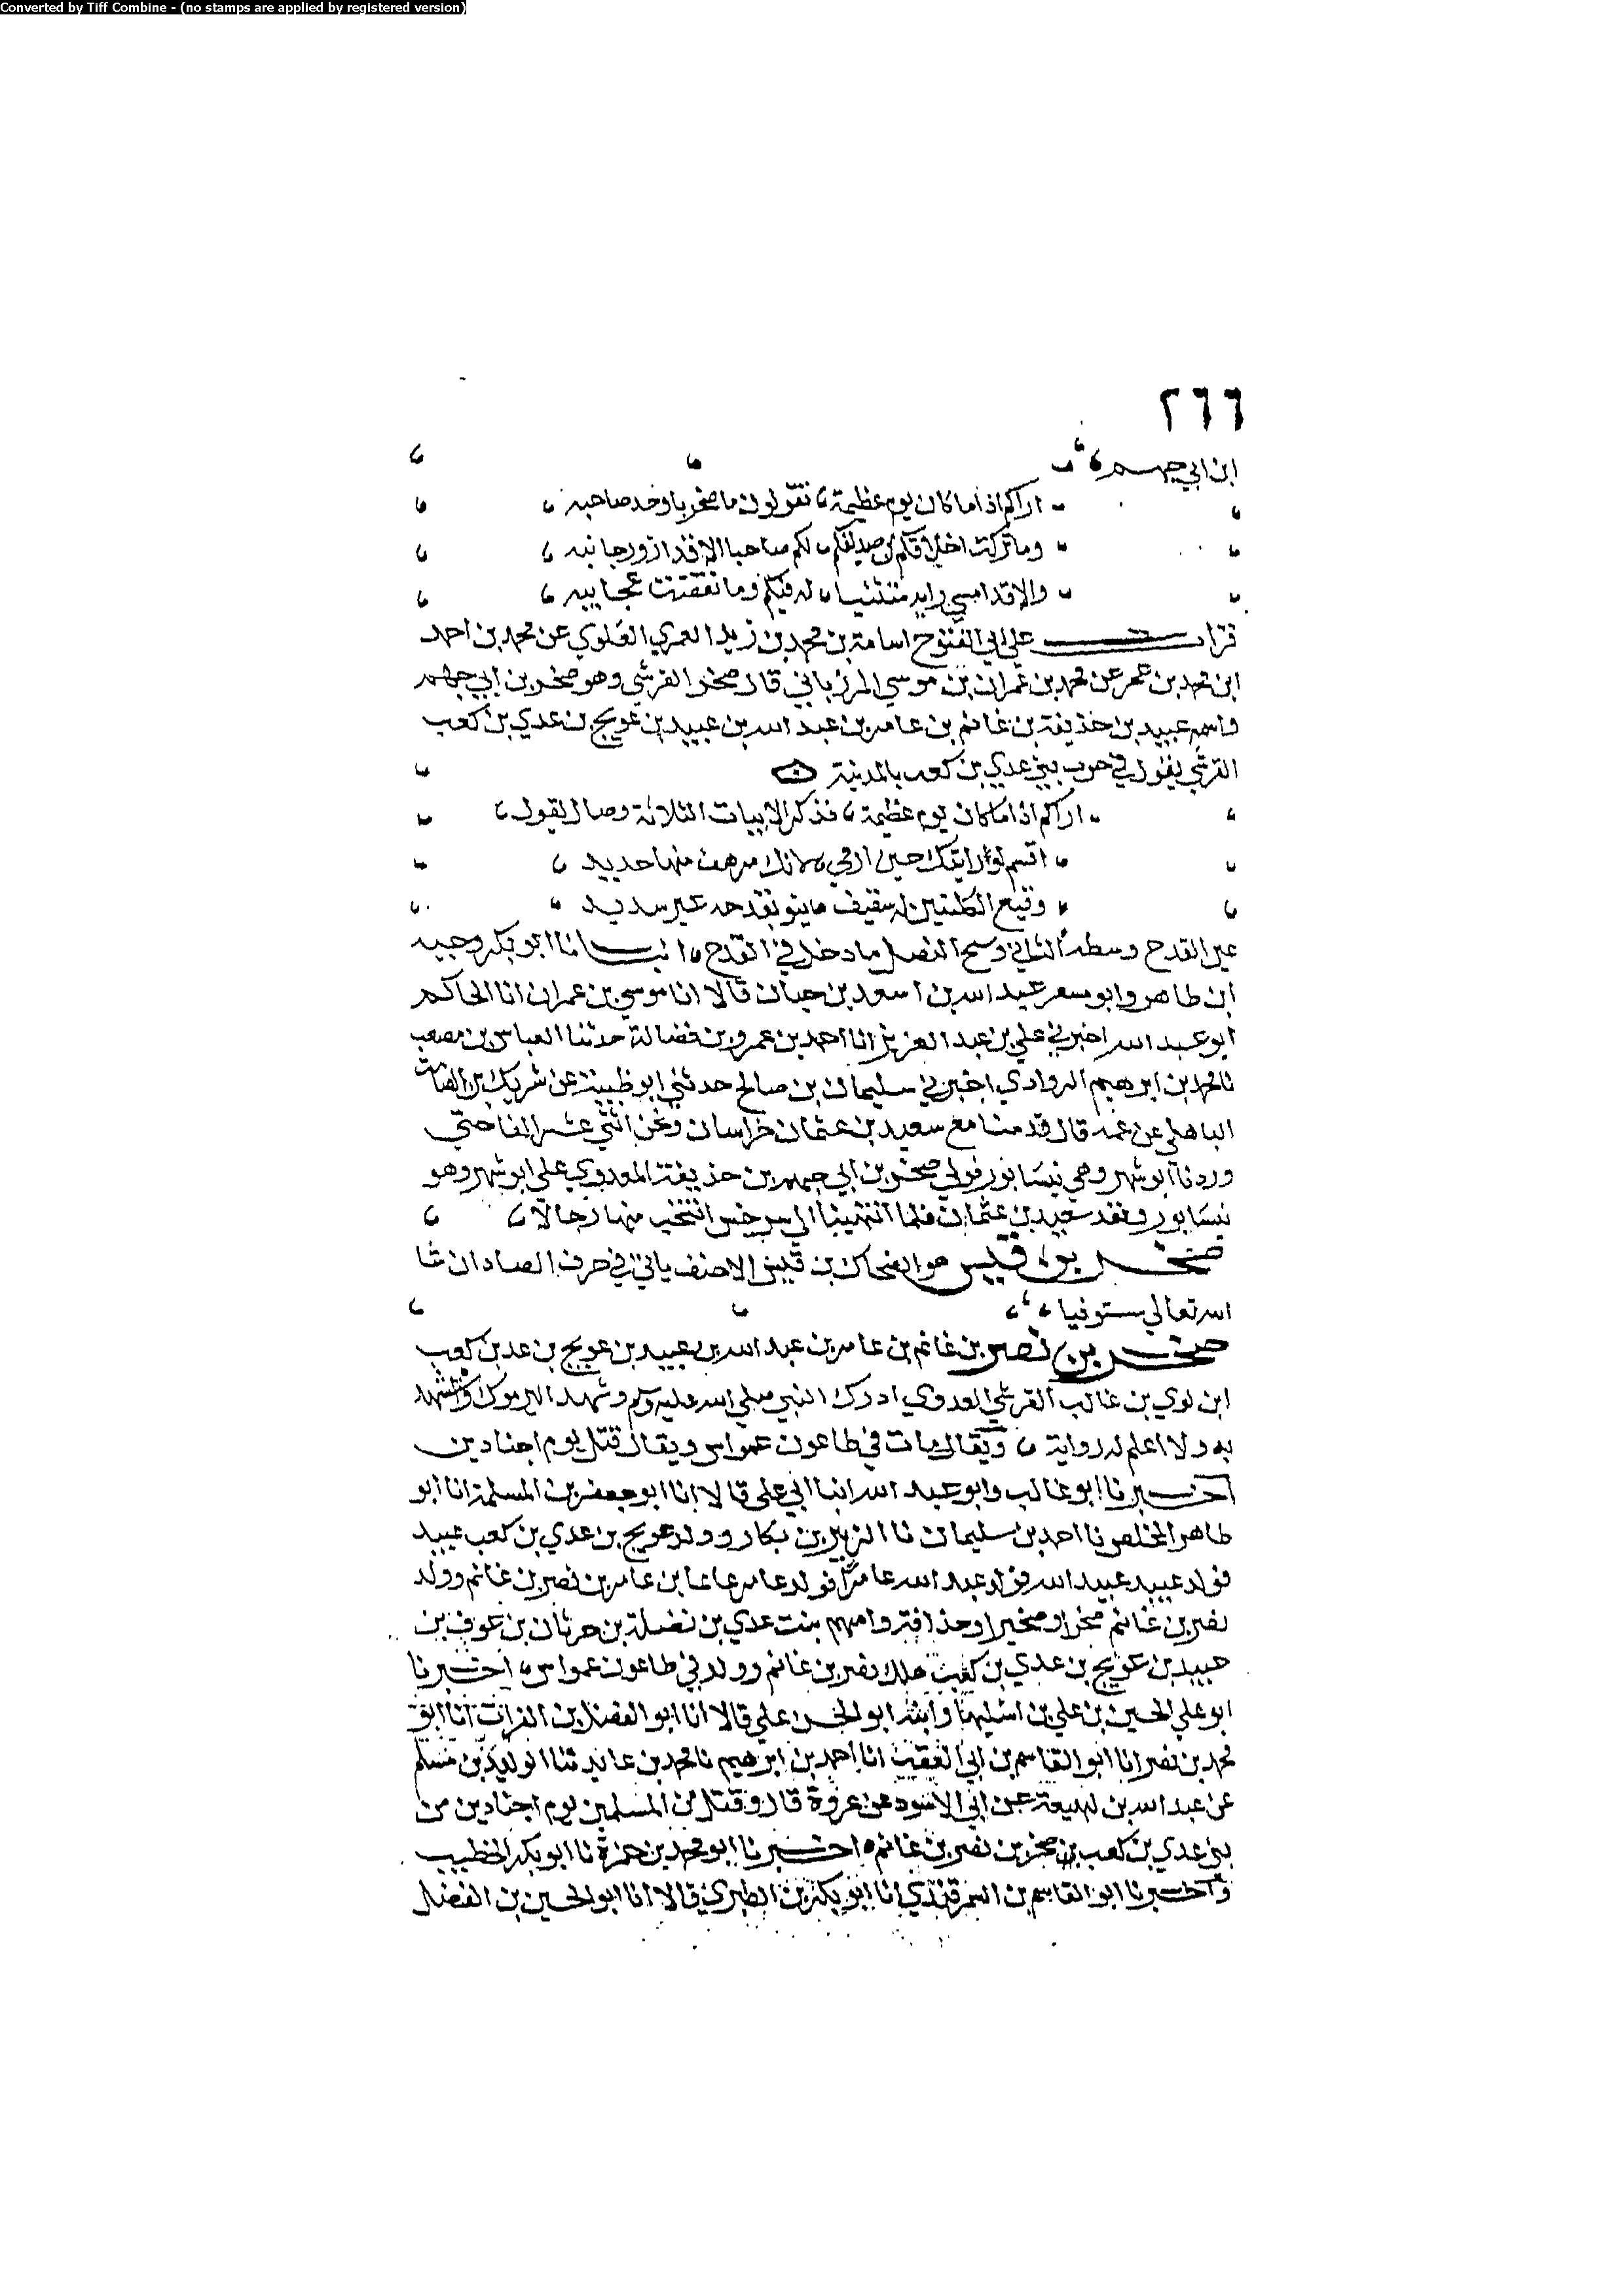 Converted by Tiff Combine - (no stamps are applied by registered version)
٢٦٦
ابن ابي جهم
اراكم اذا ما كان يوم عظيمة تقولون ما صخر باوحد صاحبه
وما تركت اخلاقكم لكم صاحبا الا قد ازور جانبه
والا قد امسي له فيكم وما عجايبه
قرات علي ابي الفتوح اسامة بن محمد بن زيد العمري العلوي عن محمد بن احمد
ابن محمد بن عمر عن محمد بن عمران بن موسي المرزباني قال صخر القرشي وهو صخر بن ابي جهم
واسمه عبيد بن حذيفة بن غانم بن عامر بن عبد الله بن عبيد بن عويج بن عدي بن كعب
القرشي يقول في حرب بني عدي بن كعب بالمدينة
اراكم اذا ما كان يوم عظيمة فذكر الابيات الثلاثة وصال يقول
اقسم لو رايتك حين ارمي منها حديد
وقيع الكليتين له سقيف غير سديد
عير القدح وسطه الناتي وسنح النصل ما دخل في القدح انبانا ابو بكر وجيه
ابن طاهر وابو سعر عبد الله بن اسعد بن حيان قالا انا موسي بن عمران انا الحاكم
ابو عبد الله اخبرني علي بن عبد العزيز انا احمد بن عمرو بن فضالة حدثنا العباس بن مصعب
نا محمد بن ابرهيم الروادي اخبرني سليمان بن صالح حدثني ابو ظبينة عن شريك بن الصامت
الباهلي عن عمه قال قدمنا مع سعيد بن عثمان خراسان ونحن اثني عشر الفا حتي
وردنا ابو شهر وهي نيسابور فولي صخر بن ابي جهم بن حذيفة العدوي علي ابو شهر وهو
نيسابور ونفد سعيد بن عثمان فلما انتهينا الي سرخس انتخب منها رجالا
صخر بن قيس هو الضحاك بن قيس الاحنف ياتي في حرف الصاد ان شا
الله تعالي مستوفيا
صخر بن نصر بن غانم بن عامر بن عبد الله بن عبيد بن عويج بن عد بن كعب
ابن لوي بن غالب القرشي العدوي ادرك النبي صلي الله عليه وسلم وشهد اليرموك واستشهد
به ولا اعلم له رواية ويقال مات في طاعون عمواس ويقال قتل يوم اجنادين
اخبرنا ابو غالب وابو عبد الله ابنا ابي علي قالا انا ابو جعفر بن المسلمة انا ابو
طاهر المخلص نا احمد بن سليمان نا الزبير بن بكار وولد عويج بن عدي بن كعب عبيد
فولد عبيد عبيد الله فولد عبد الله عامرا فولد عامر بن عامر بن نصر بن غانم وولد
نصر بن غانم صخرا وصخيرا وحذافة وامهم بنت عدي بن نضلة بن حرثان بن عوف بن
عبيد بن عويج بن عدي بن كعب هلك نصر بن غانم وولده في طاعون عمواس اخبرنا
ابو علي الحسين بن علي بن اشليها وابنه ابو الحسن علي قالا انا ابو الفضل بن الفرات انا ابو
محمد بن نصر انا ابو القاسم بن ابي العقب انا احمد بن ابرهيم نا محمد بن عايد ثنا الوليد بن مسلم
عن عبد الله بن لهيعة عن ابي الاسود عن عروة قال وقتل من المسلمين يوم اجنادين من
بني عدي بن كعب بن صخر بن نصر بن غانم اخبرنا ابو محمد بن حمزة نا ابو بكر الخطيب
واخبرنا ابو القاسم بن السمرقندي انا ابو بكر بن الطبري قالا انا ابو الحسين بن الفضل